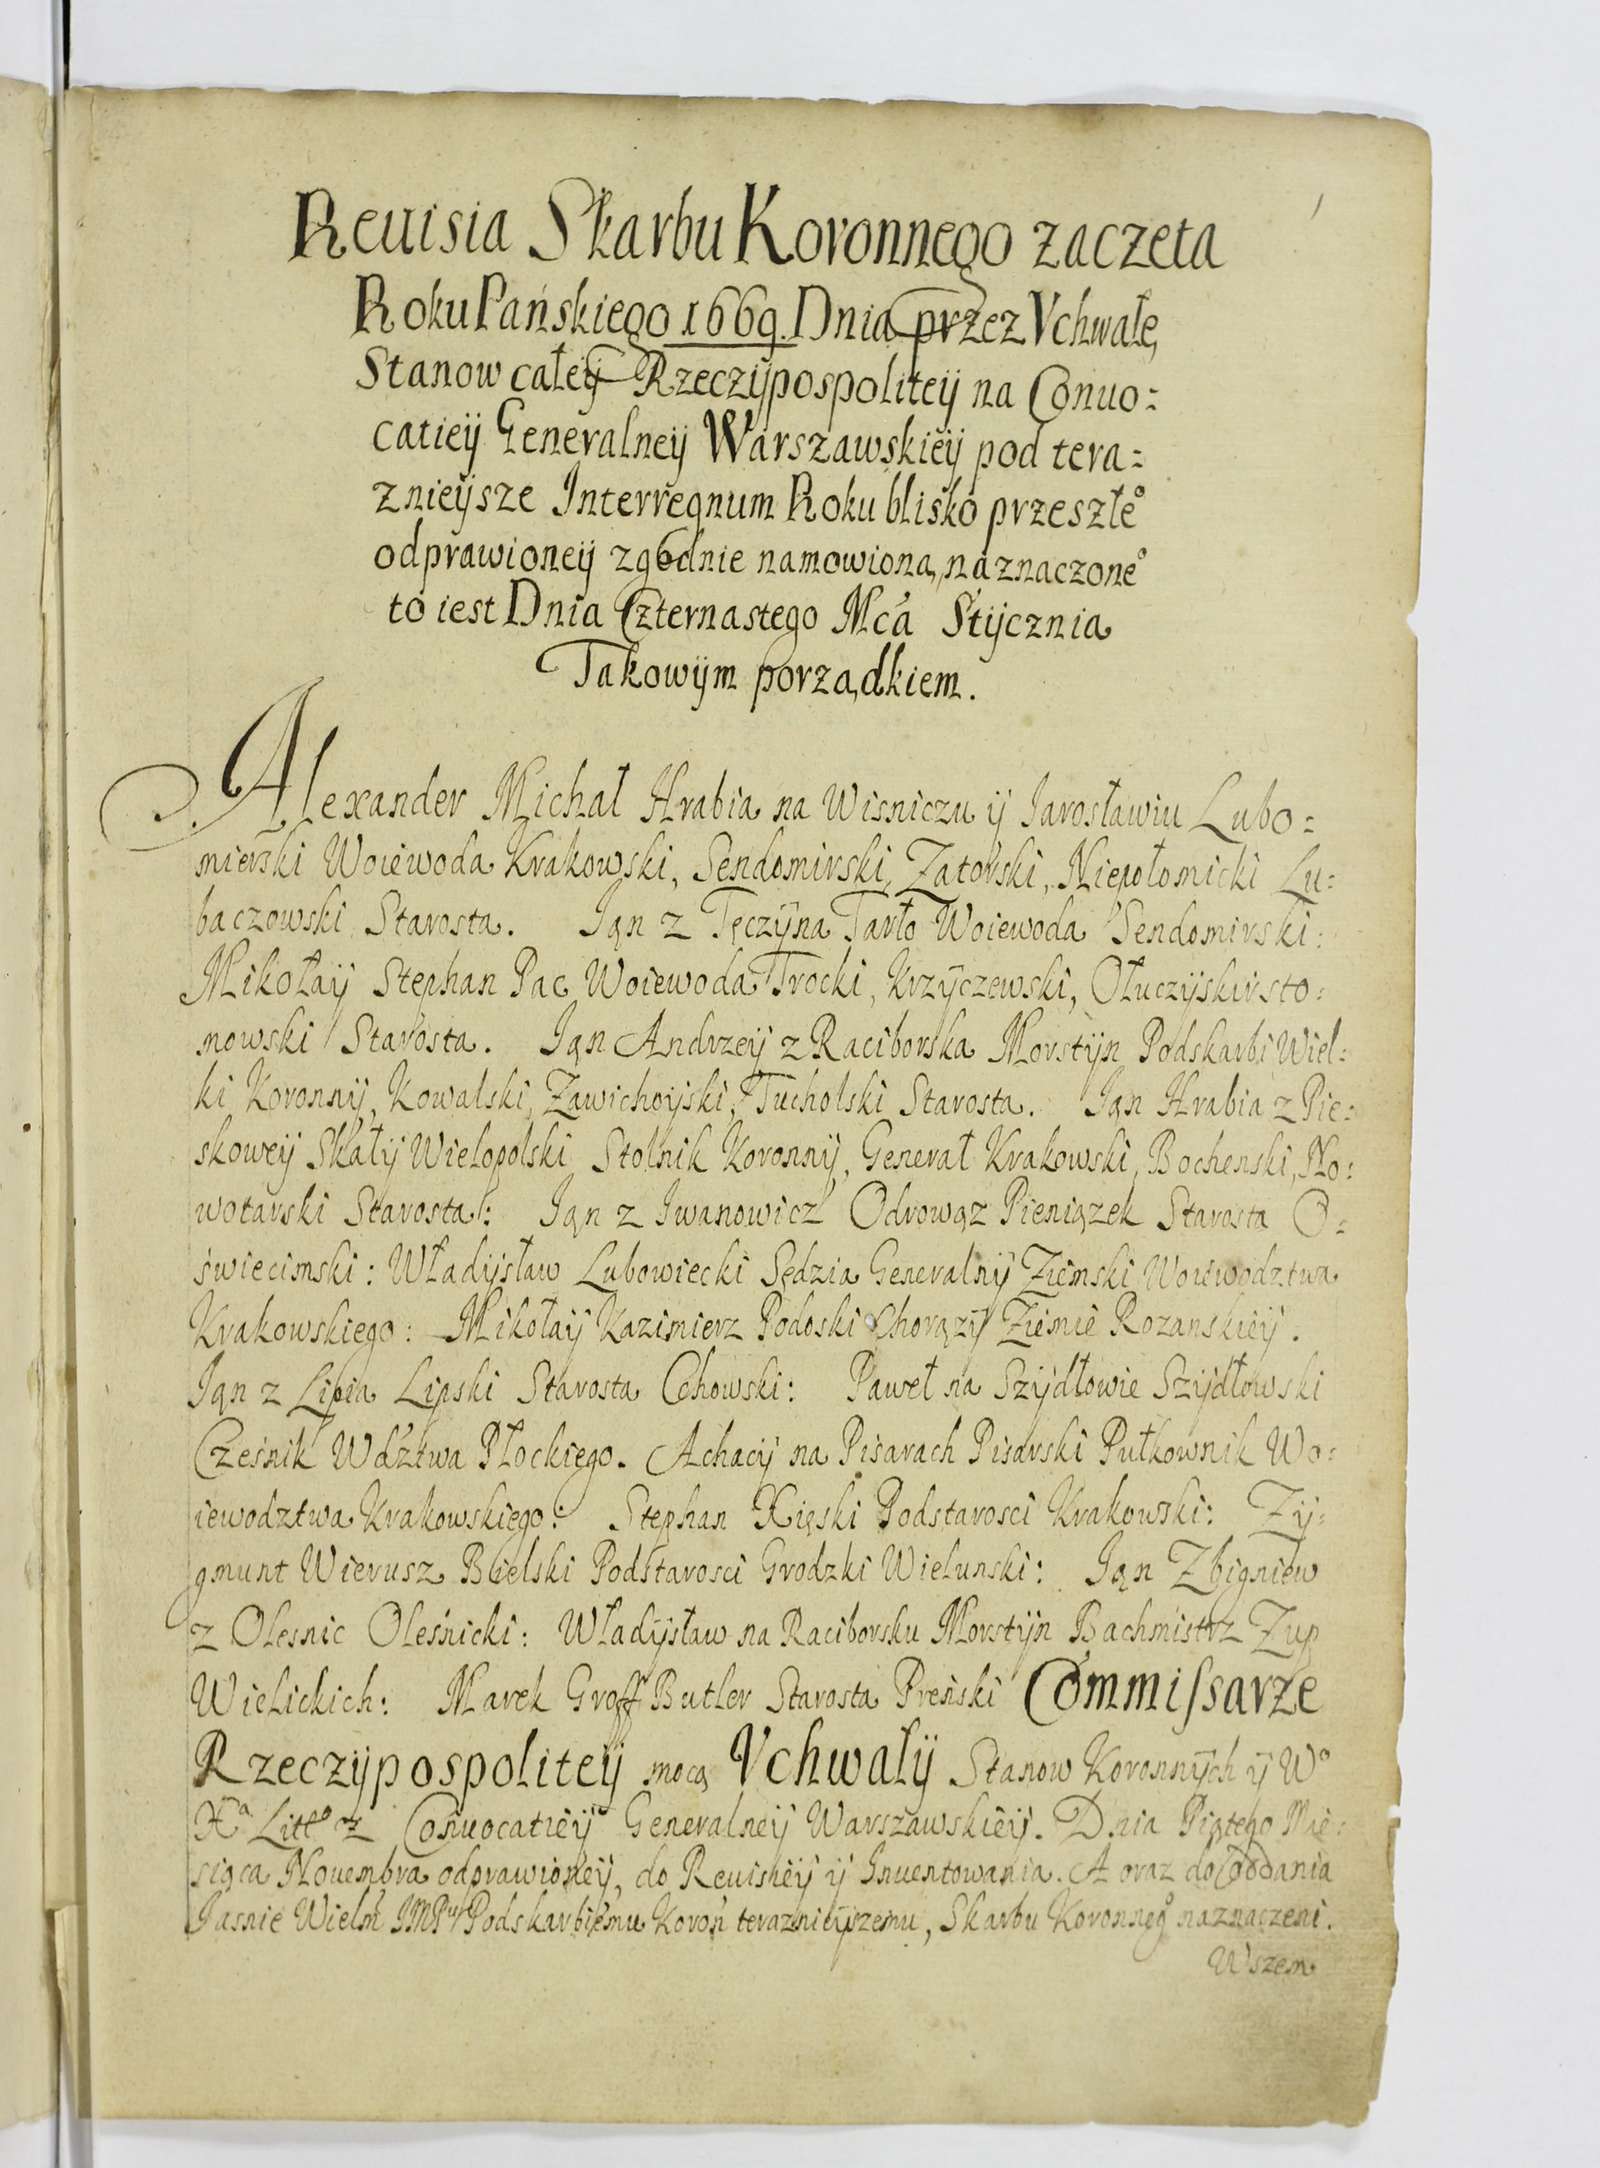 1
Reuisia Skarbu Koronnego zaczeta
Roku Pańskiego 1669. Dnia przez Vchwałę
Stanow całeÿ Rzeczÿpospoliteÿ na Conuo=
catieÿ Generalneÿ Warszawskieÿ pod tera=
znieÿsze Interregnum Roku blisko przeszłe°
odprawioneÿ zgodnie namowioną, naznaczone°
to iest Dnia Czternastego Mcá Stÿcznia
Takowÿm porządkiem.
Alexander Michał Hrabia na Wisniczu ÿ Iarosławiu Lubo=
mierski Woiewoda Krakowski, Sendomirski, Zatorski, Niepołomicki Lu=
baczowski Starosta. Ian z Tęczÿna Tarło Woiewoda Sendomirski:
Mikołaÿ Stephan Pac Woiewoda Trocki, Krzÿczewski,
nowski Starosta. Ian Andrzeÿ z Raciborska Morstÿn Podskarbi Wiel=
ki Koronnÿ, Kowalski, Zawichoÿski, Tucholski Starosta. Ian Hrabia z Pie=
skoweÿ Skałÿ Wielopolski Stolnik Koronnÿ, Generał Krakowski, Bochenski, No=
wotarski Starosta: Ian z Iwanowicz Odrowąz Pieniązek Starosta O=
świecimski: Władÿsław Lubowiecki Sędzia Generalnÿ Ziemski Woiewodztwa
Krakowskiego: Mikołaÿ Kazimierz Podoski Chorązÿ Ziemie Rozanskieÿ.
Ian z Lipia Lipski Starosta Cchowski: Paweł na Szÿdłowie Szÿdłowski
Cześnik Wdztwa Płockiego. Achacÿ na Pisarach Pisarski Pułkownik Wo=
iewodztwa Krakowskiego: Stephan Xięski Podstarosci Krakowski: Zÿ=
gmunt Wierusz Bielski Podstarosci Grodzki Wielunski: Ian Zbigniew
z Olesnic Oleśnicki: Władÿsław na Raciborsku Morstÿn Bachmistrz Zup
Wielickich: Marek Groff Butler Starosta Preński Commissarze
Rzeczÿpospoliteÿ mocą Vchwałÿ Stanow Koronnÿch ÿ W°
Xª Littº z Conuocatieÿ Generalneÿ Warszawskieÿ. Dnia Piątego Mie=
siąca Nouembra odprawioneÿ, do Reuisieÿ ÿ Inuentowania. A oraz do oddania
Iasnie Wielm̃ IMPu Podskarbiemu Koroñ teraznieÿszemu, Skarbu Koronneg° naznaczeni.
Wszem